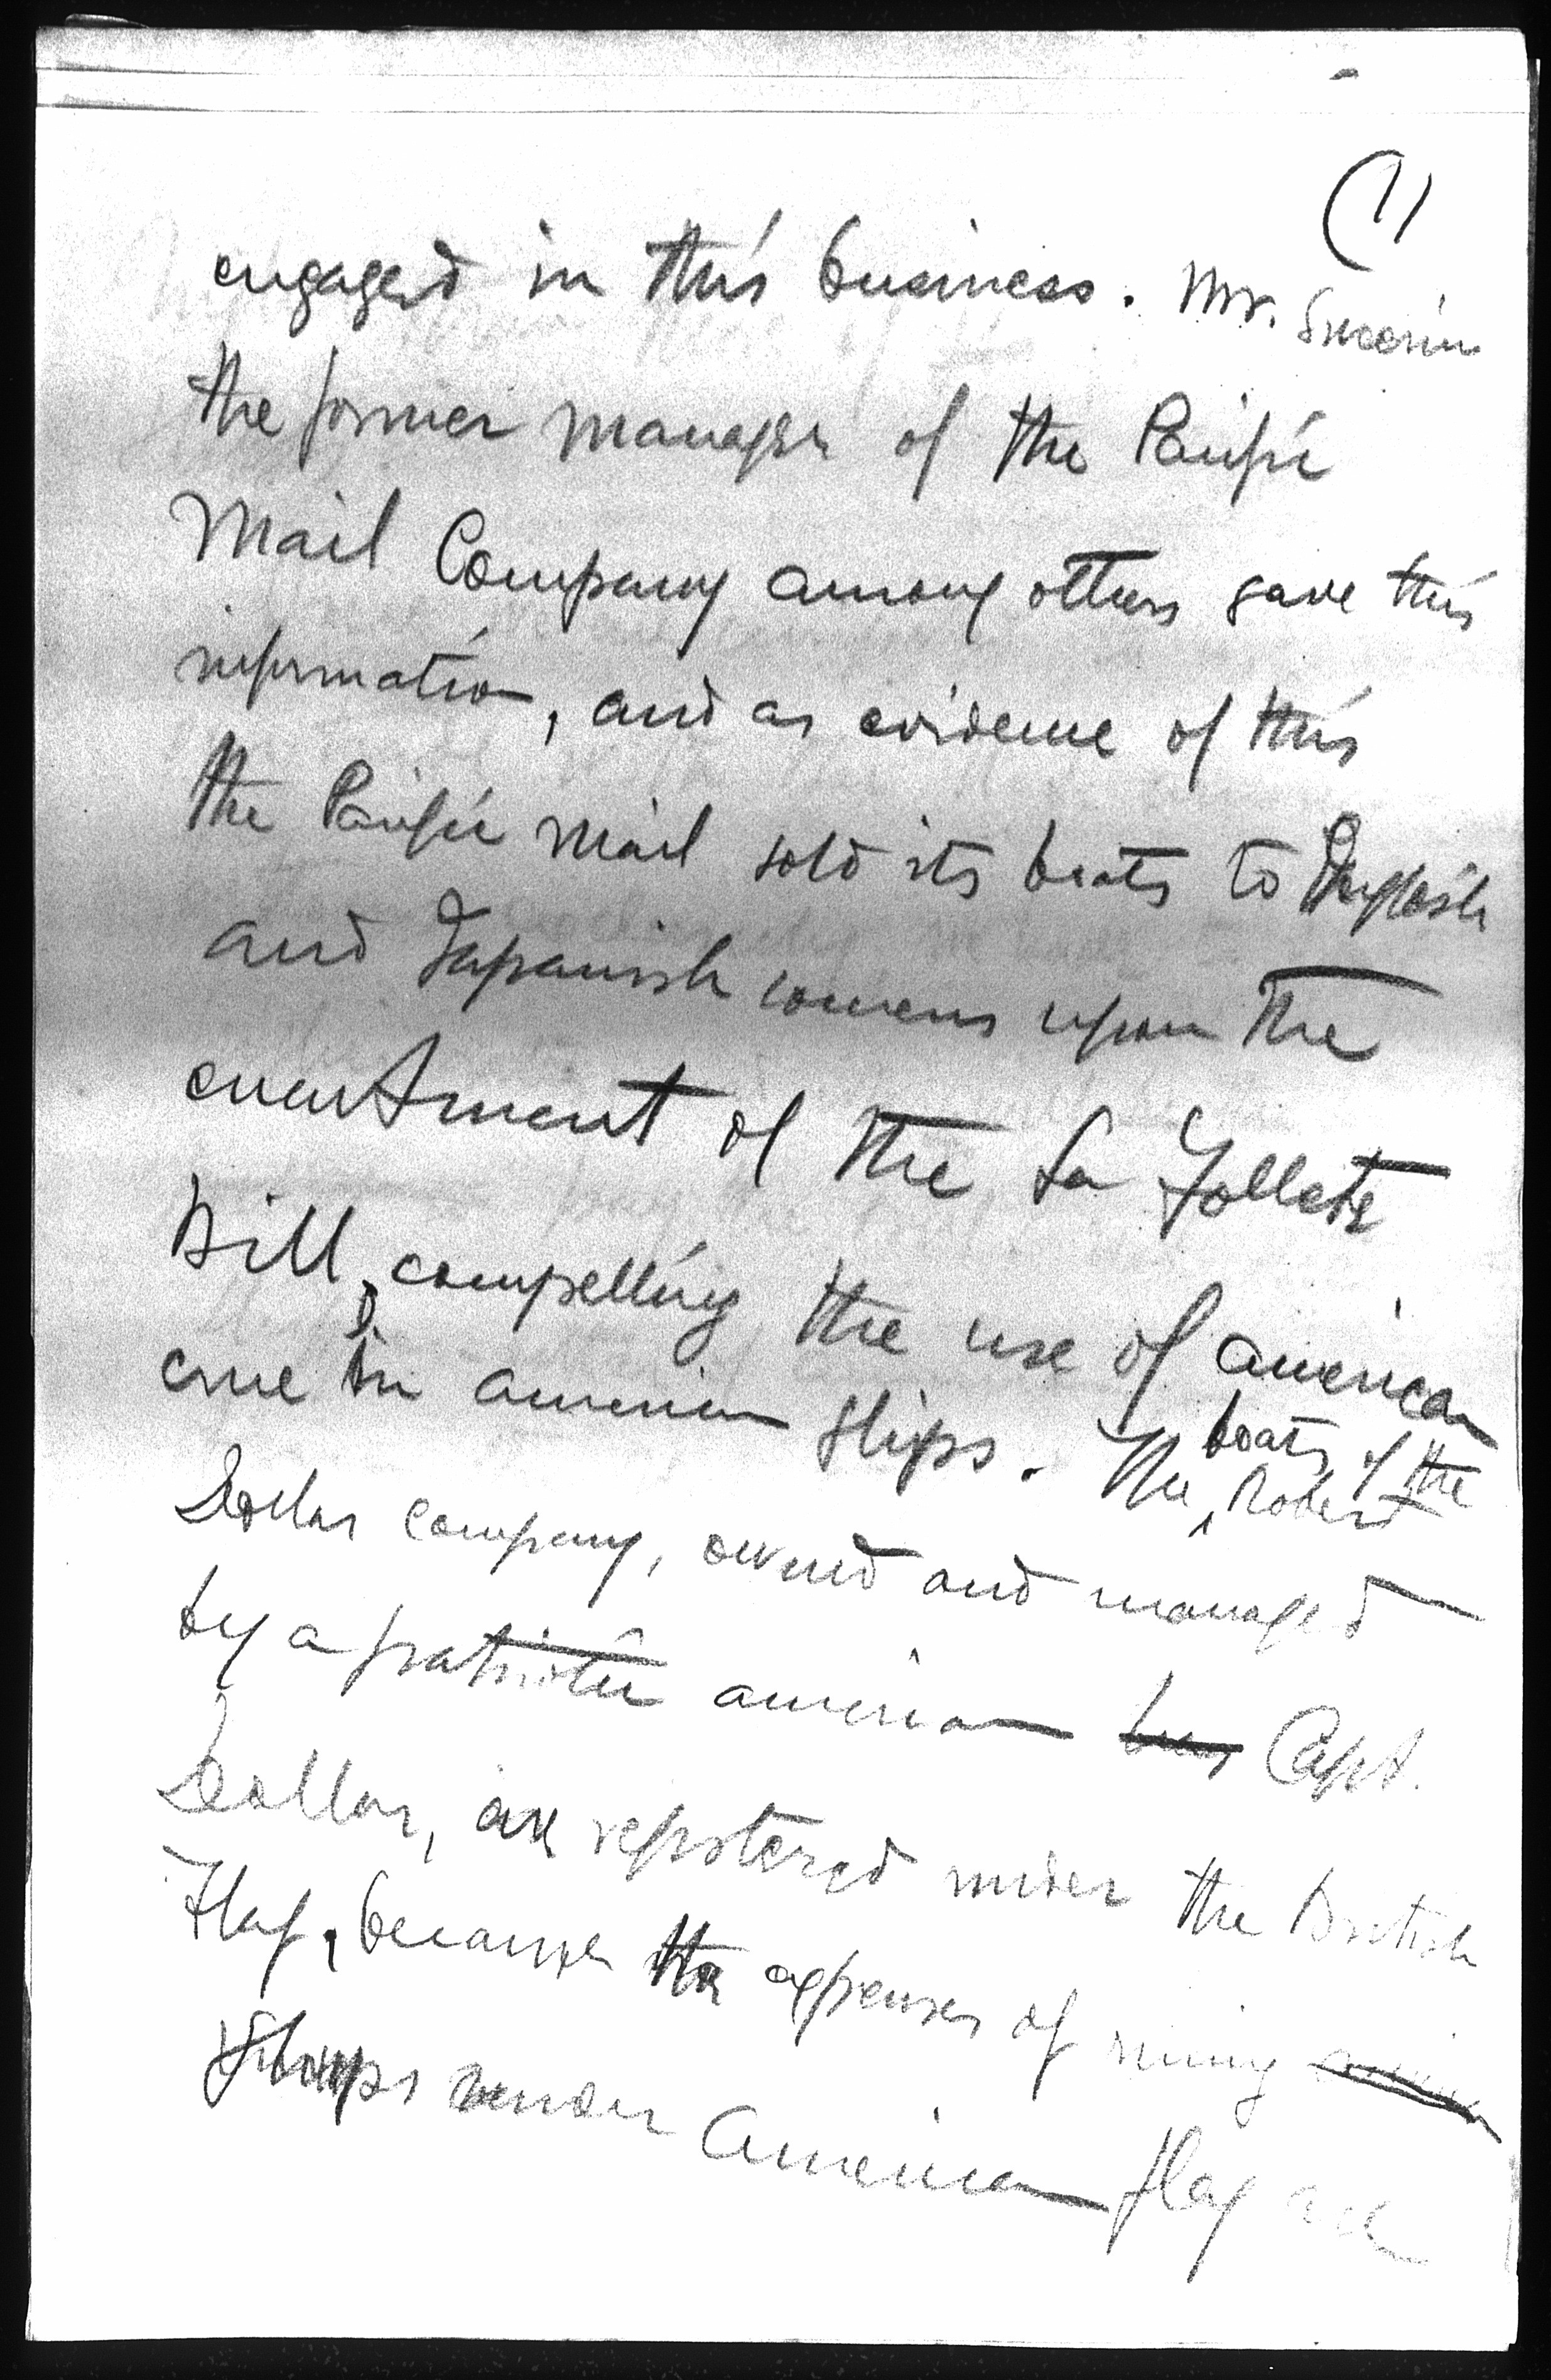 (11
engaged in this business. Mr.
the former manager of the Pacific
Mail Company among others gave this
information, and as evidence of this
the Pacific Mail sold its boats to English
and Japanish concerns upon the
enactment of the La Follete
Bill, compelling the use of american
crue in american ships. The boats of the Robert
Dollar company, owned and managed
by a patriotic american Capt.
Dollar, are registered under the British
Flag, because the expenses of runing
ships under American flag are